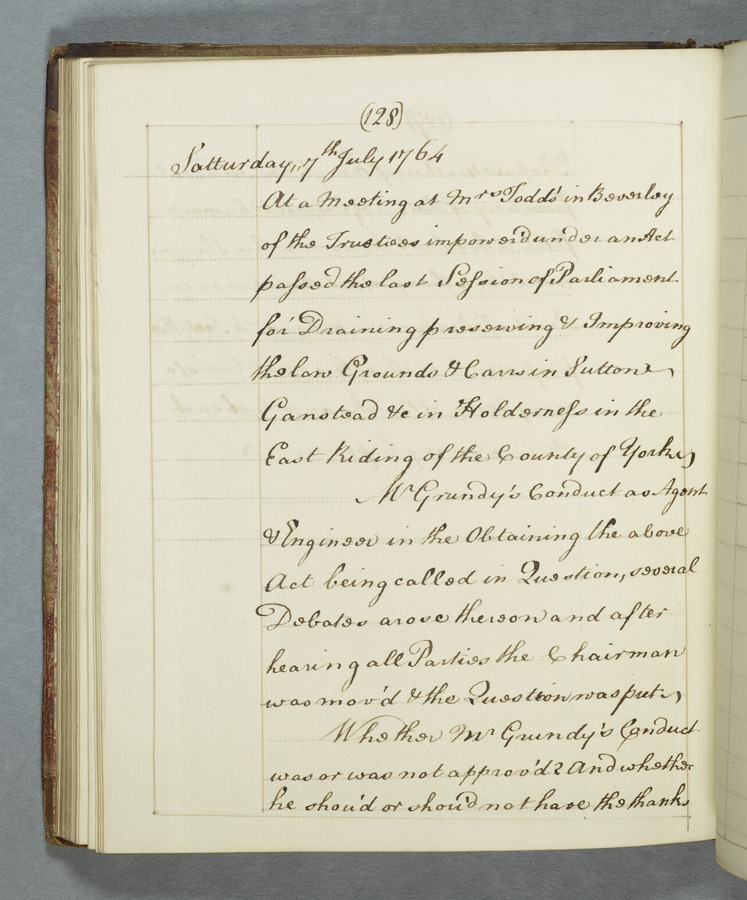 (128)
Satturday, 7th July 1764
At a Meeting at Mrs Todd's in Beverley
of the Trustees impower'd under an Act
passed the last Session of Parliament
for Draining preserving & Improving
the low Grounds & Carrs in Sutton
Ganstead &c in Holderness in the
East Riding of the County of York
Mr Grundy's Conduct as Agent
& Engineer in the Obtaining the above
Act being called in Question, several
Debates arose thereon and after
hearing all Parties the Chairman
was mov'd & the Question was put
Whether Mr Grundy's Conduct
was or was not approv'd? And whether
he shou'd or shou'd not have the thanks